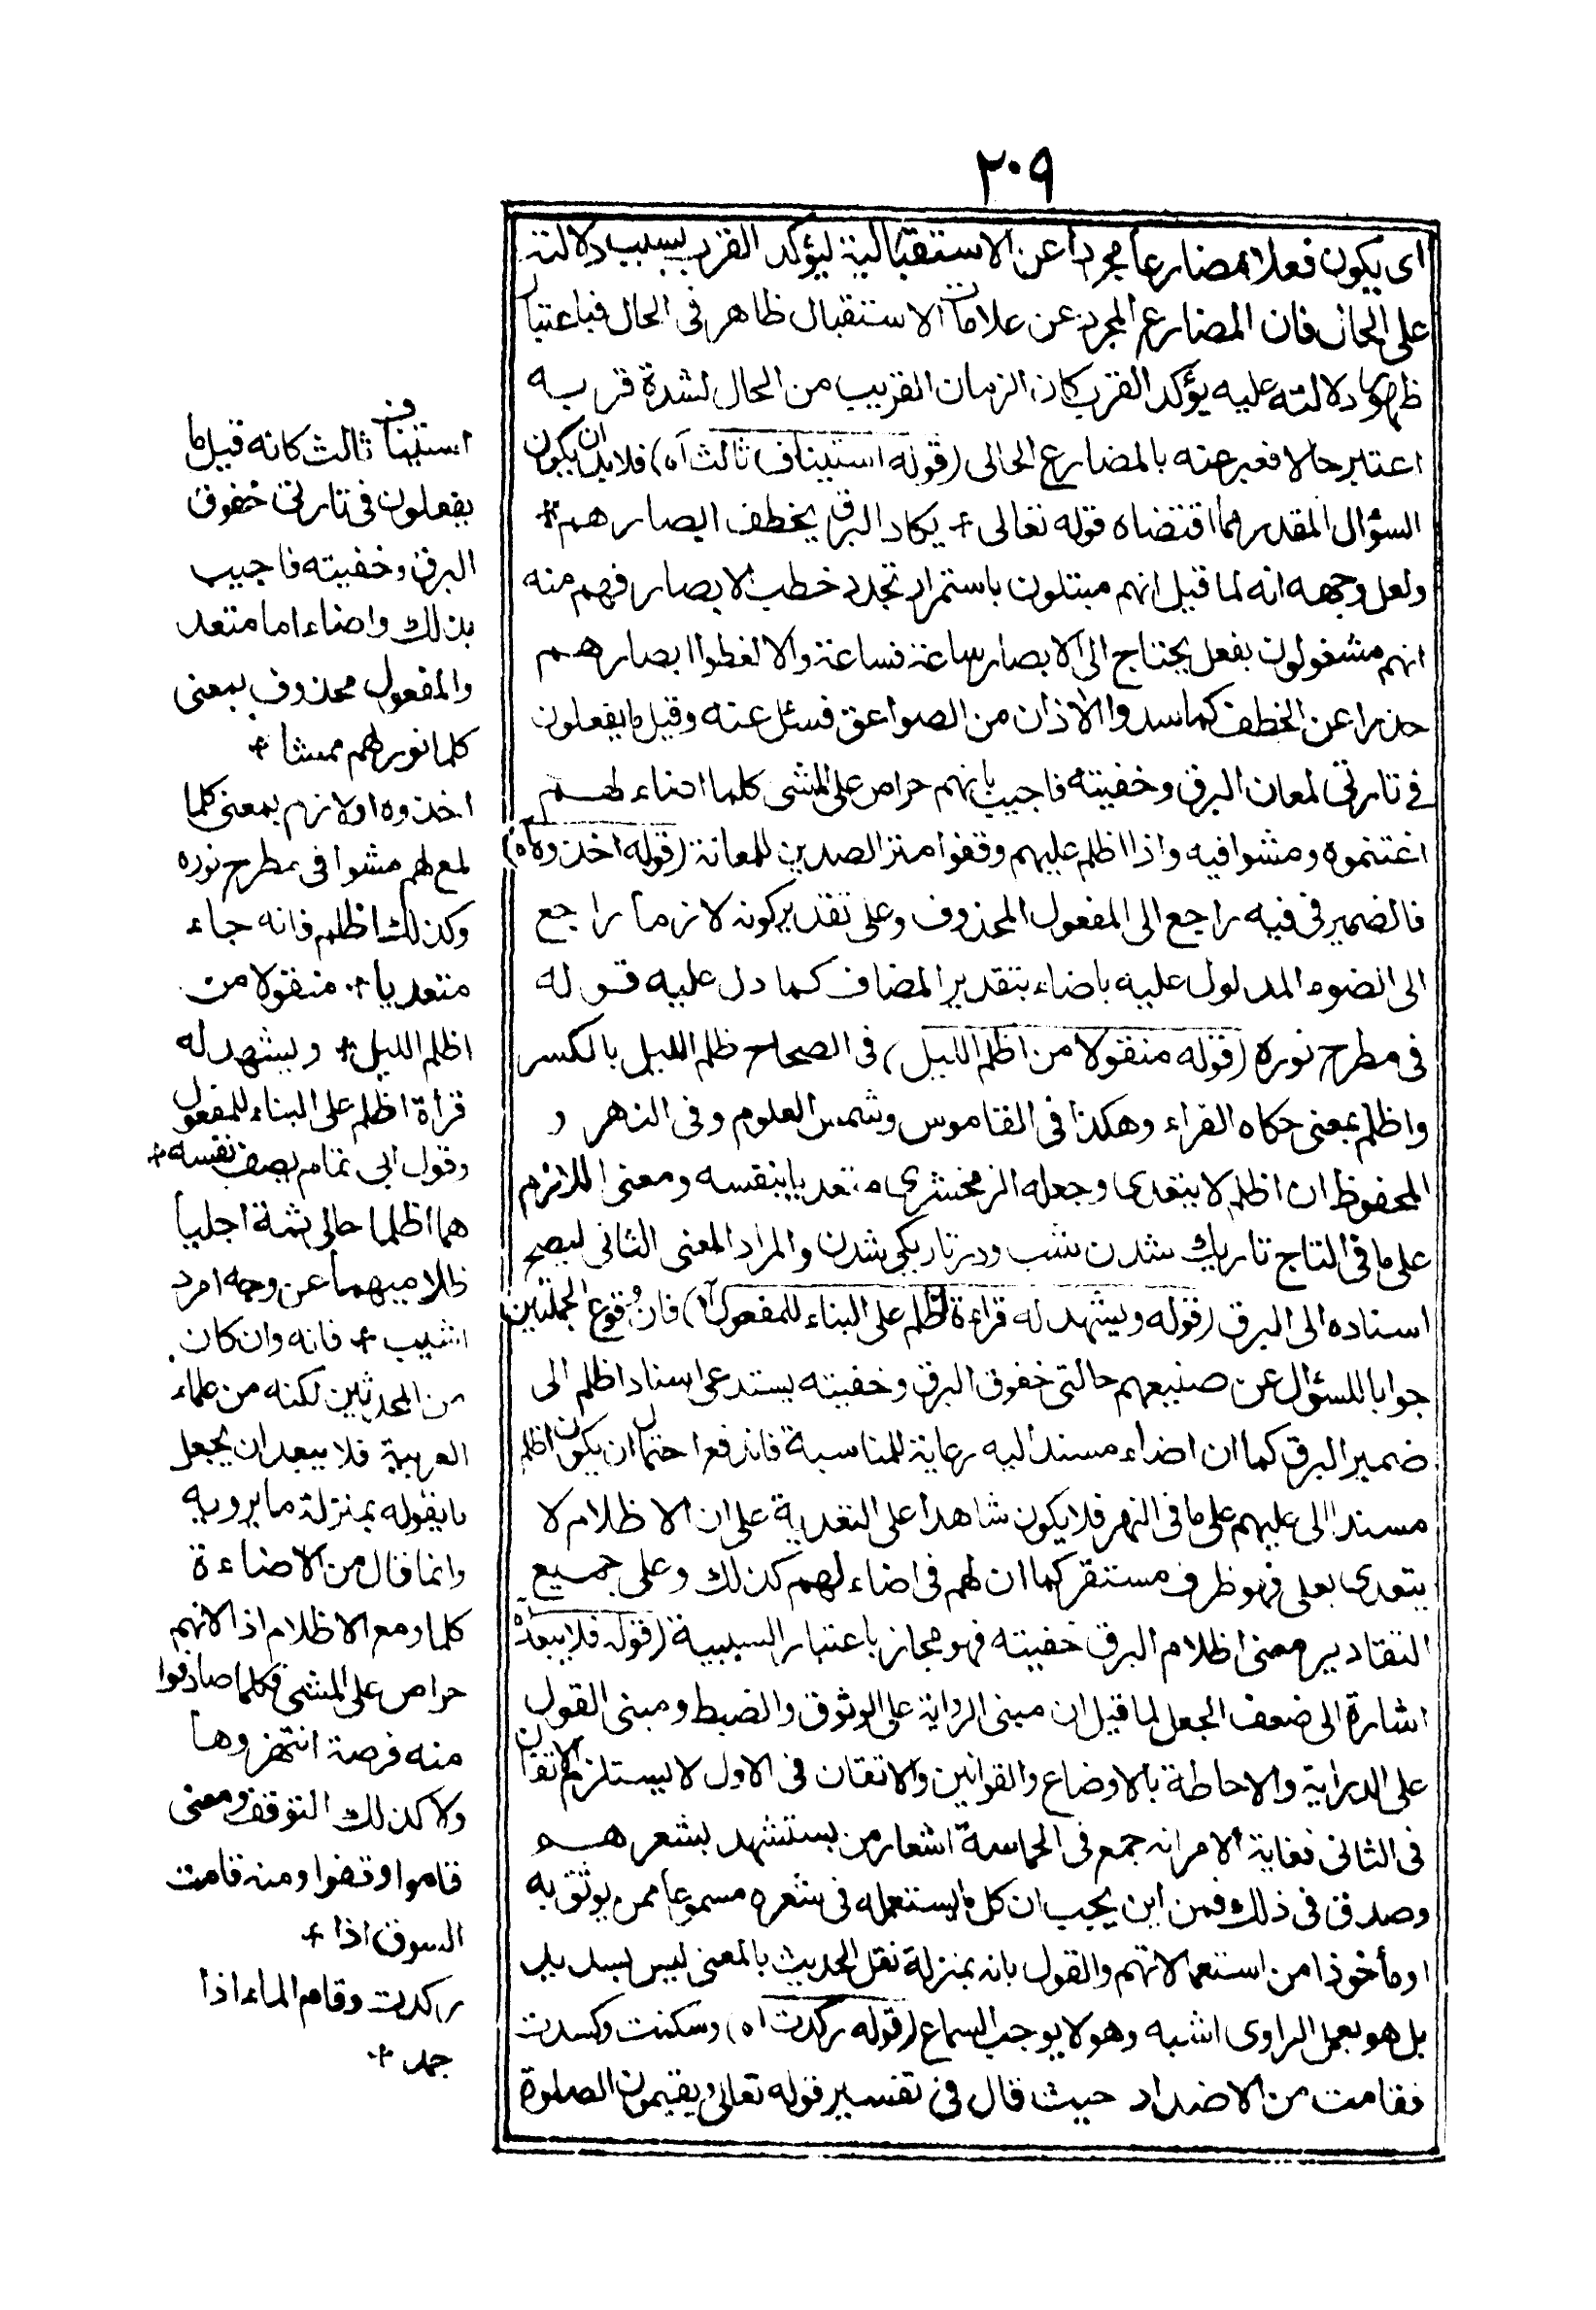 ٢٠٩
اى يكون فعلا مضارعا مجردا عن الاستقبالية ليؤكد القرب بسبب دلالته
على الحال فان المضارع المجرد عن علامات الاستقبال ظاهر فى الحال فباعتبار
ظهور دلالته عليه يؤكد القرب كان الزمان القريب من الحال لشدة قربه
اعتبر حالا فعبر عنه بالمضارع الحالى (قوله استيناف ثالث اه) فلا بد ان يكون
السؤال المقدر مما اقتضاه قوله تعالى + يكاد البرق يخطف ابصارهم +
ولعل وجهه انه لما قيل انهم مبتلون باستمرار تجدد خطب الابصار فهم منه
انهم مشغولون بفعل يحتاج الى الابصار ساعة فساعة والا لغطوا ابصارهم
حذرا عن الخطف كما سدوا الاذان من الصواعق فسئل عنه وقيل ما يفعلون
فى تارتى لمعان البرق وخفيته فاجيب بانهم حراص على المشى كلما اضاء لهم
اغتنموه ومشوا فيه واذا اظلم عليهم وقفوا منتر الصدين للمعانة (قوله اخذوه اه)
فالضمير فى فيه راجع الى المفعول المحذوف وعلى تقدير كونه لازما راجع
الى الضوء المدلول عليه باضاء بتقدير المضاف كما دل عليه قوله
فى مطرح نوره (قوله منقولا من اظلم الليل) فى الصحاح ظلم الليل بالكسر
واظلم بمعنى حكاه الفراء وهكذا فى القاموس وشمس العلوم وفى النهر و
المحفوظ ان اظلم لا يتعدى وجعله الزمخشرى متعديا بنفسه ومعنى اللازم
على ما فى التاج تاريك شدن شب ودر تاريكى شدن والمراد المعنى الثانى ليصح
اسناده الى البرق (قوله ويشهد له قراءة اظلم على البناء للمفعول اه) فان وقوع الجملتين
جوابا للسؤال عن صنيعهم حالتى خفوق البرق وخفيته يستدعى اسناد اظلم الى
ضمير البرق كما ان اضاء مسند اليه رعاية للمناسبة فاندفع احتمال ان يكون اظلم
مسندا الى عليهم على ما فى النهر فلا يكون شاهدا على التعدية على ان الاظلام لا
يتعدى بعلى فهو ظرف مستقر كما ان لهم فى اضاء لهم كذلك وعلى جميع
التقادير معنى اظلام البرق خفيته فهو مجاز باعتبار السببية (قوله فلا يبعد اه)
اشارة الى ضعف الجعل لما قيل ان مبنى الرواية على الوثوق والضبط ومبنى القول
على الدراية والاحاطة بالاوضاع والقوانين والاتقان فى الاول لا يستلزم الاتقان
فى الثانى فغاية الامر انه جمع فى الحماسة اشعار من يستشهد بشعرهم
وصدق فى ذلك فمن اين يجب ان كل ما يستعمله فى شعره مسموعا ممن يوثق به
او مأخوذا من استعمالاتهم والقول بانه بمنزلة نقل الحديث بالمعنى ليس بسديد
بل هو بعمل الراوى اشبه وهو لا يوجب السماع (قوله ركدت اه) وسكنت وكسدت
فقامت من الاضداد حيث قال فى تفسير قوله تعالى ويقيمون الصلوة
استيناف ثالث كانه قيل ما
يفعلون فى تارتى خفوق
البرق وخفيته فاجيب
بذلك واضاء اما متعد
والمفعول محذوف بمعنى
كلما نور لهم ممشا +
اخذوه او لازم بمعنى كلما
لمع لهم مشوا فى مطرح نوره
وكذلك اظلم فانه جاء
متعديا + منقولا من
اظلم الليل + ويشهد له
قرأة اظلم على البناء للمفعول
وقول ابى تمام يصف نفسه +
هما اظلما حالى ثمة اجليا
ظلاميهما عن وجه امرد
اشيب + فانه وان كان
من المحدثين لكنه من علماء
العربية فلا يبعد ان يجعل
ما يقوله بمنزلة ما يرويه
وانما قال من الاضاءة
كلما ومع الاظلام اذا لانهم
حراص على المشى فكلما صادفوا
منه فرصة انتهزوها
ولا كذلك التوقف ومعنى
قاموا وقفوا ومنه قامت
السوق اذا +
ركدت وقام الماء اذا
جمد +